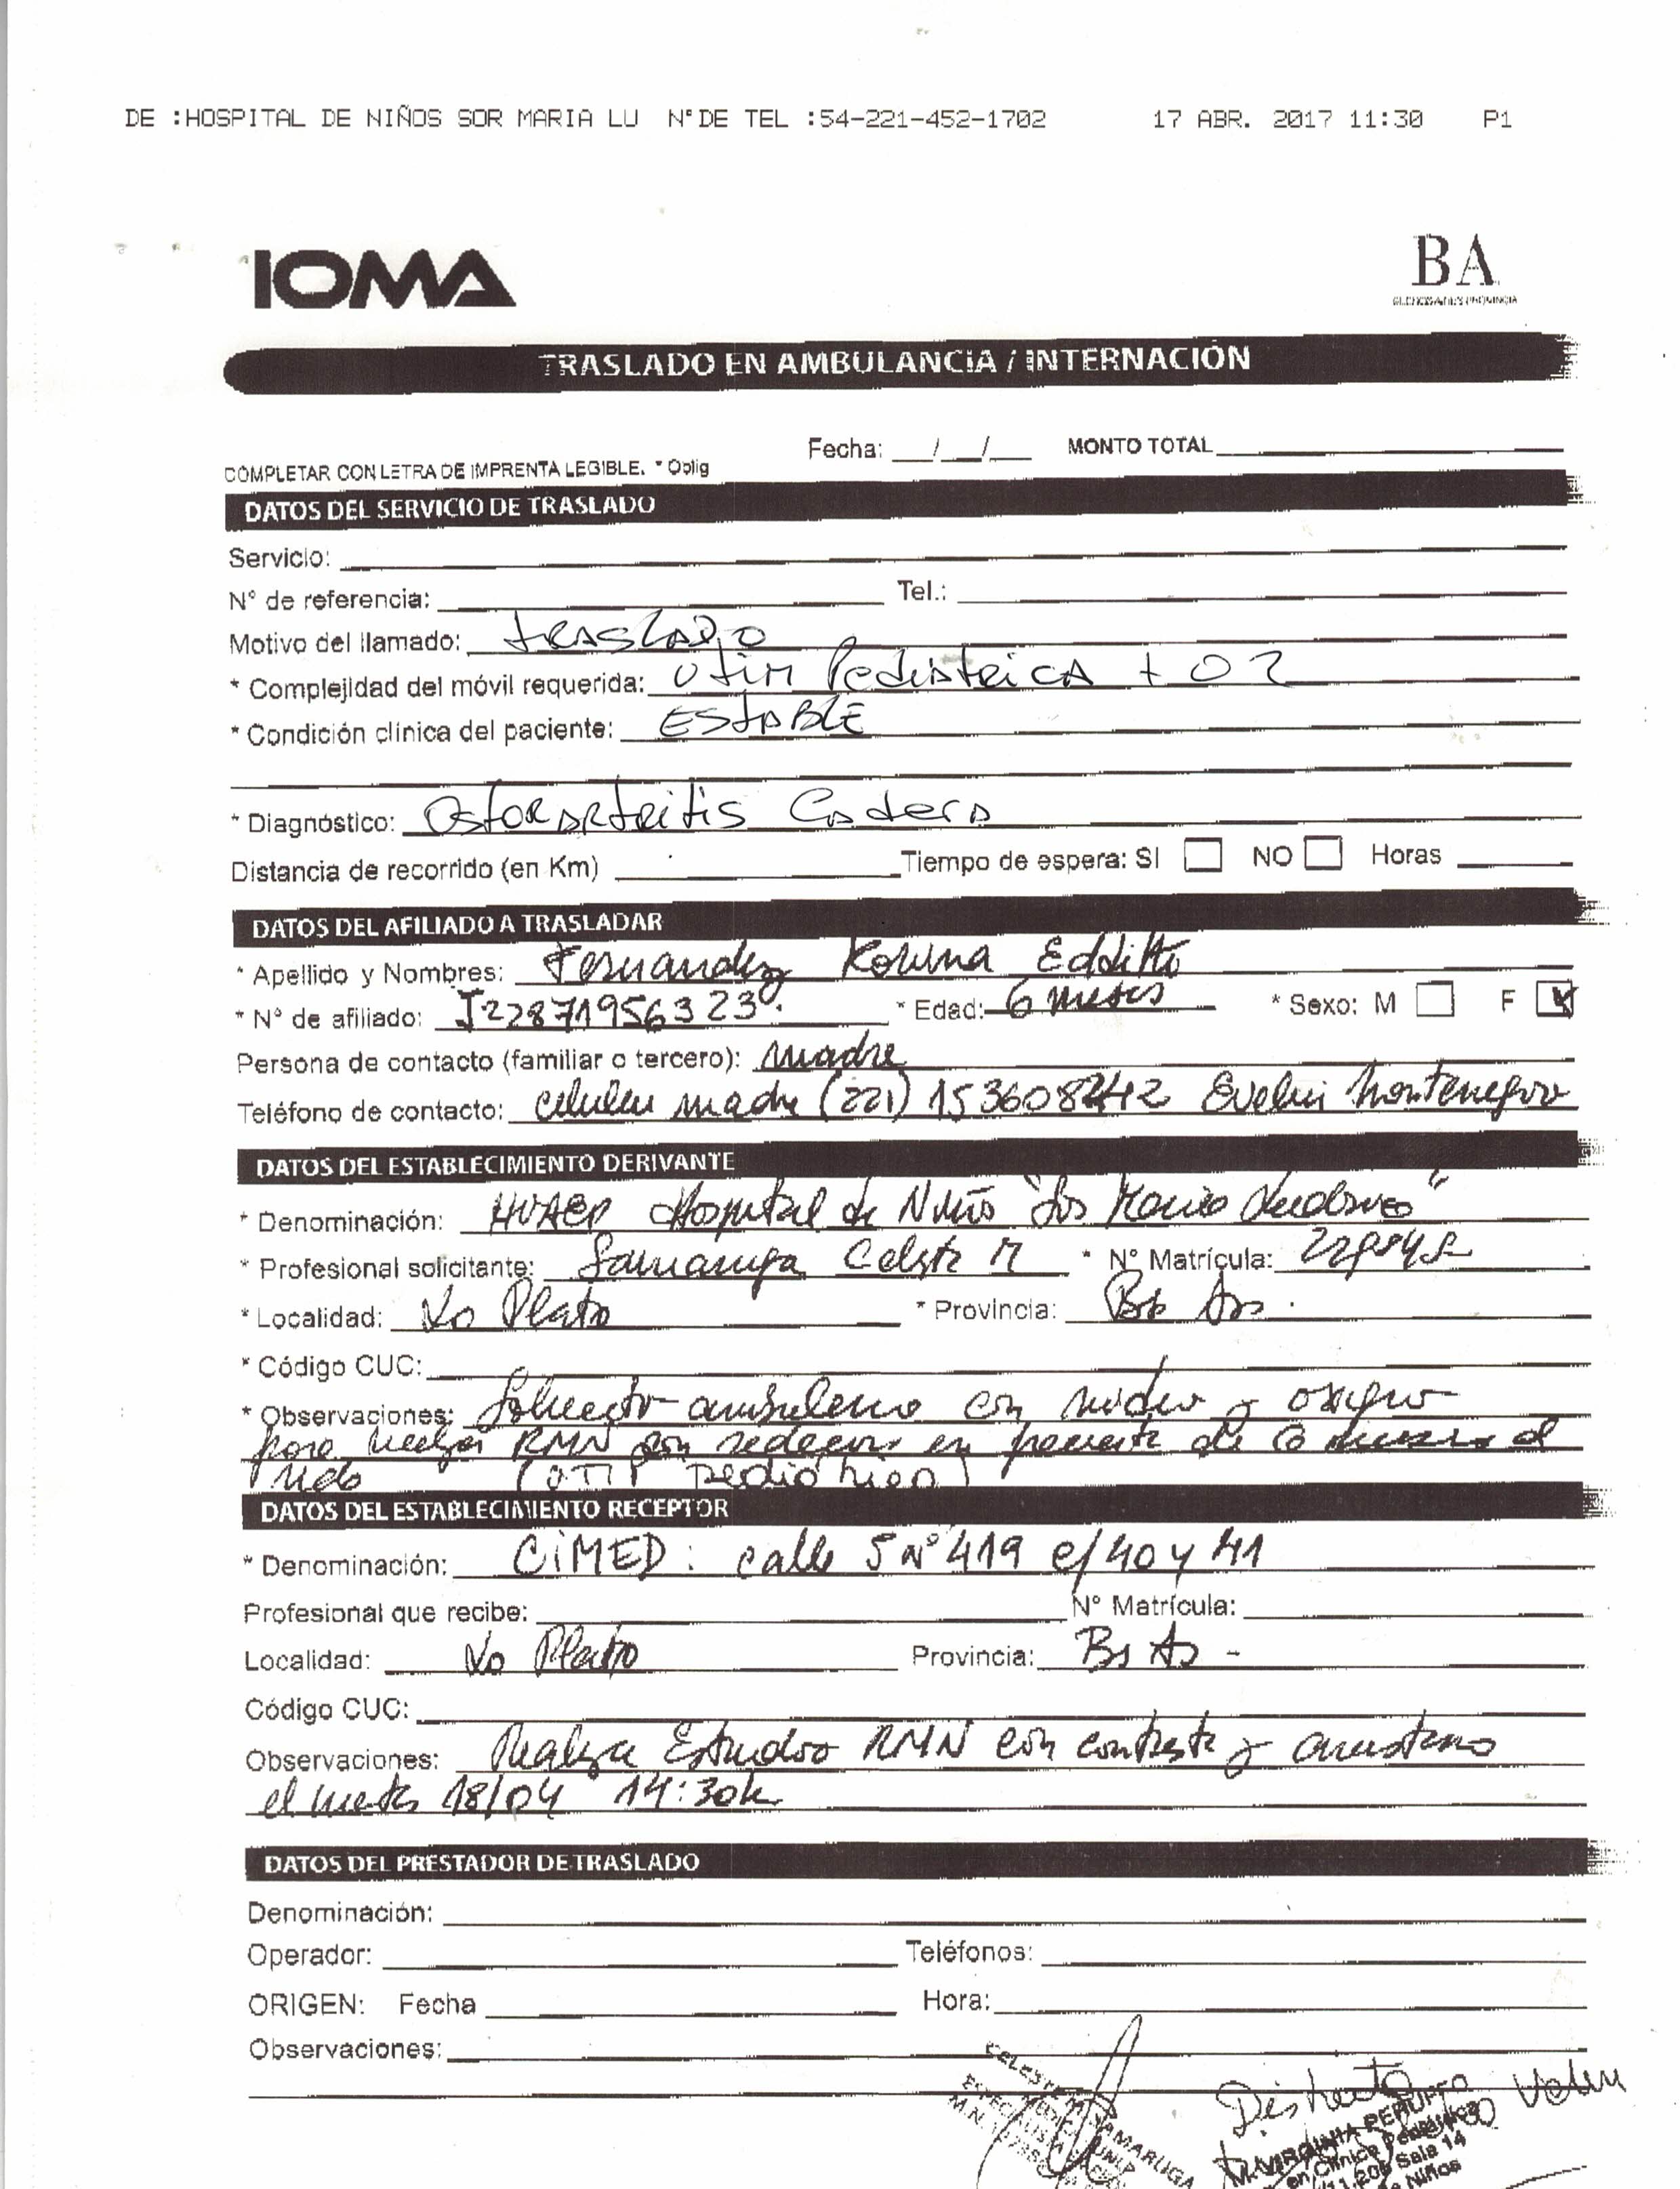 DE :HOSPITAL DE NIÑOS SOR MARIA LU N°DE TEL :54-221-452-1702 17 ABR. 2017 11:30 P1
IOMA
BA
BUENOS AIRES PROVINCIA
TRASLADO EN AMBULANCIA / INTERNACIÓN
Fecha: __/__/__ MONTO TOTAL
COMPLETAR CON LETRA DE IMPRENTA LEGIBLE. * Oblig
DATOS DEL SERVICIO DE TRASLADO
Servicio:
N° de referencia: Tel.:
Motivo del llamado: traslado
* Complejidad del móvil requerida: UTIM Pediatrica + O2
* Condición clínica del paciente: ESTABLE
* Diagnóstico: Osteoartritis Cadera
Distancia de recorrido (en Km) Tiempo de espera: SI NO Horas
DATOS DEL AFILIADO A TRASLADAR
* Apellido y Nombres: Fernandez Korina
* N° de afiliado: * Edad: 6 meses * Sexo: M F
Persona de contacto (familiar o tercero): madre
Teléfono de contacto: celular madre (221) Montenegro
DATOS DEL ESTABLECIMIENTO DERIVANTE
* Denominación: Hospital de Niños "Sor Maria Ludovica"
* Profesional solicitante: Samaruga Celeste M * N° Matrícula:
* Localidad: La Plata * Provincia: Bs As.
* Código CUC:
* Observaciones: Solicito ambulancia con medico y oxigeno
para realizar RMN con sedacion en paciente de 6 meses
DATOS DEL ESTABLECIMIENTO RECEPTOR
* Denominación: CIMED: calle 5 N° 419 e/40 y 41
Profesional que recibe: N° Matrícula:
Localidad: La Plata Provincia: Bs As -
Código CUC:
Observaciones: Realiza Estudio RMN con contraste y anestesia
el martes 18/04 14:30h
DATOS DEL PRESTADOR DE TRASLADO
Denominación:
Operador: Teléfonos:
ORIGEN: Fecha Hora:
Observaciones: